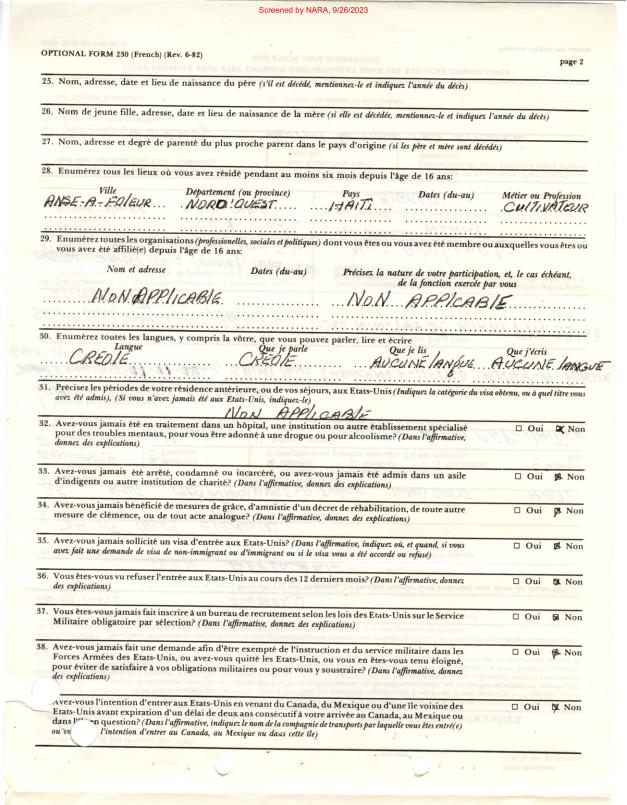 Screened by NARA, 9/26/2023
OPTIONAL FORM 230 (French) (Rev. 6-82)
page 2
25. Nom, adresse, date et lieu de naissance du père (s'il est décédé, mentionnez-le et indiquez l'année du décès)
26. Nom de jeune fille, adresse, date et lieu de naissance de la mère (si elle est décédée, mentionnez-le et indiquez l'année du décès)
27. Nom, adresse et degré de parenté du plus proche parent dans le pays d'origine (si les père et mère sont décédés)
28. Enumérez tous les lieux où vous avez résidé pendant au moins six mois depuis l'âge de 16 ans:
Ville Département (ou province) Pays Dates (du-au) Métier ou Profession
ANSE-A-FOLEUR NORD'OUEST HAITI CULTIVATEUR
29. Enumérez toutes les organisations (professionelles, sociales et politiques) dont vous êtes ou vous avez été membre ou auxquelles vous êtes ou
vous avez été affilié(e) depuis l'âge de 16 ans:
Nom et adresse Dates (du-au) Précisez la nature de votre participation, et, le cas échéant,
de la fonction exercée par vous
NON APPLICABLE NON APPLICABLE
30. Enumérez toutes les langues, y compris la vôtre, que vous pouvez parler, lire et écrire
Langue Que je parle Que je lis Que j'écris
CREOLE CREOLE AUCUNE LANGUE AUCUNE LANGUE
31. Précisez les périodes de votre résidence antérieure, ou de vos séjours, aux Etats-Unis (Indiquez la catégorie du visa obtenu, ou à quel titre vous
avez été admis), (Si vous n'avez jamais été aux Etats-Unis, indiquez-le)
NON APPLICABLE
32. Avez-vous jamais été en traitement dans un hôpital, une institution ou autre établissement spécialisé
pour des troubles mentaux, pour vous être adonné à une drogue ou pour alcoolisme? (Dans l'affirmative,
donnez des explications)
□ Oui ☒ Non
33. Avez-vous jamais été arrêté, condamné ou incarcéré, ou avez-vous jamais été admis dans un asile
d'indigents ou autre institution de charité? (Dans l'affirmative, donnez des explications)
□ Oui ☒ Non
34. Avez-vous jamais bénéficié de mesures de grâce, d'amnistie d'un décret de réhabilitation, de toute autre
mesure de clémence, ou de tout acte analogue? (Dans l'affirmative, donnez des explications)
□ Oui ☒ Non
35. Avez-vous jamais sollicité un visa d'entrée aux Etats-Unis? (Dans l'affirmative, indiquez où, et quand, si vous
avez fait une demande de visa de non-immigrant ou d'immigrant ou si le visa vous a été accordé ou refusé)
□ Oui ☒ Non
36. Vous êtes-vous vu refuser l'entrée aux Etats-Unis au cours des 12 derniers mois? (Dans l'affirmative, donnez
des explications)
□ Oui ☒ Non
37. Vous êtes-vous jamais fait inscrire à un bureau de recrutement selon les lois des Etats-Unis sur le Service
Militaire obligatoire par sélection? (Dans l'affirmative, donnez des explications)
□ Oui ☒ Non
38. Avez-vous jamais fait une demande afin d'être exempté de l'instruction et du service militaire dans les
Forces Armées des Etats-Unis, ou avez-vous quitté les Etats-Unis, ou vous en êtes-vous tenu éloigné,
pour éviter de satisfaire à vos obligations militaires ou pour vous y soustraire? (Dans l'affirmative, donnez
des explications)
□ Oui ☒ Non
Avez-vous l'intention d'entrer aux Etats-Unis en venant du Canada, du Mexique ou d'une île voisine des
Etats-Unis avant expiration d'un délai de deux ans consécutif à votre arrivée au Canada, au Mexique ou
dans question? (Dans l'affirmative, indiquez le nom de la compagnie de transports par laquelle vous êtes entré(e)
ou l'intention d'entrer au Canada, au Mexique ou dans cette île)
□ Oui ☒ Non